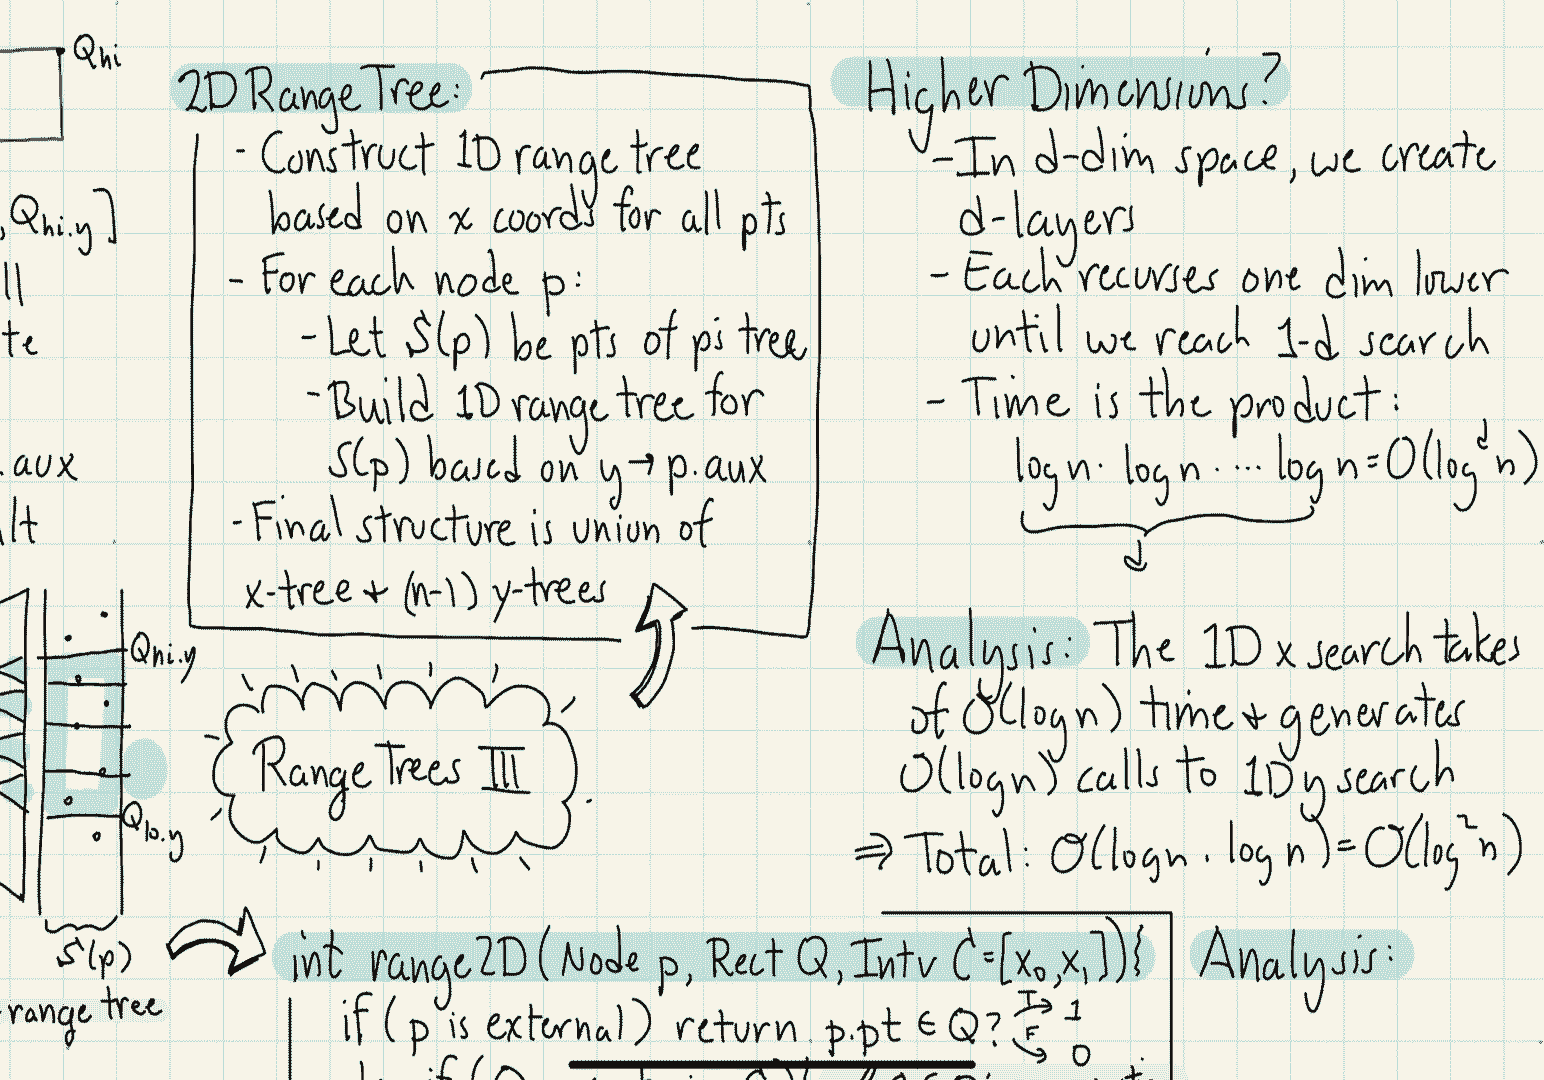 Qhi
, Qhi.y]
ll
te
.aux
lt
2D Range Tree:
- Construct 1D range tree
based on x coords for all pts
- For each node p:
- Let S(p) be pts of p's tree
- Build 1D range tree for
S(p) based on y → p.aux
- Final structure is union of
x-tree + (n-1) y-trees
Higher Dimensions?
- In d-dim space, we create
d-layers
- Each recurses one dim lower
until we reach 1-d search
- Time is the product:
log n · log n · ... log n = O(log^d n)
d
Analysis: The 1D x search takes
of O(log n) time + generates
O(log n) calls to 1D y search
⇒ Total: O(log n · log n) = O(log² n)
Range Trees III
Qhi.y
Qlo.y
S(p)
-range tree
int range2D(Node p, Rect Q, Intv C=[x₀,x₁]){
if (p is external) return p.pt ∈ Q? T→ 1
F→ 0
Analysis: